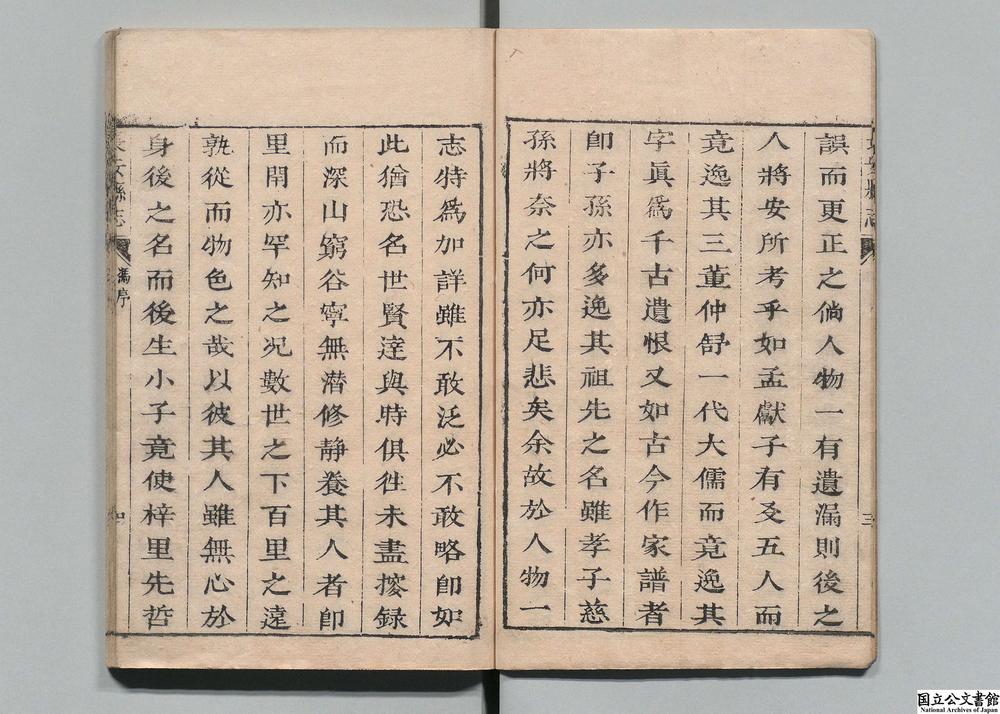 誤而更正之倘人物一有遺漏則後之
人將安所考乎如孟獻子有友五人而
竟逸其三董仲舒一代大儒而竟逸其
字眞爲千古遺恨又如古今作家譜者
卽子孫亦多逸其祖先之名雖孝子慈
孫將奈之何亦足悲矣余故於人物一
三
志特爲加詳雖不敢泛必不敢略卽如
此猶恐名世賢達與時俱徃未盡搜録
而深山窮谷寧無潛修靜養其人者卽
里閈亦罕知之况數世之下百里之遠
孰從而物色之哉以彼其人雖無心於
身後之名而後生小子竟使梓里先哲
安縣志
馮序
四
国立公文書館
National Archives of Japan